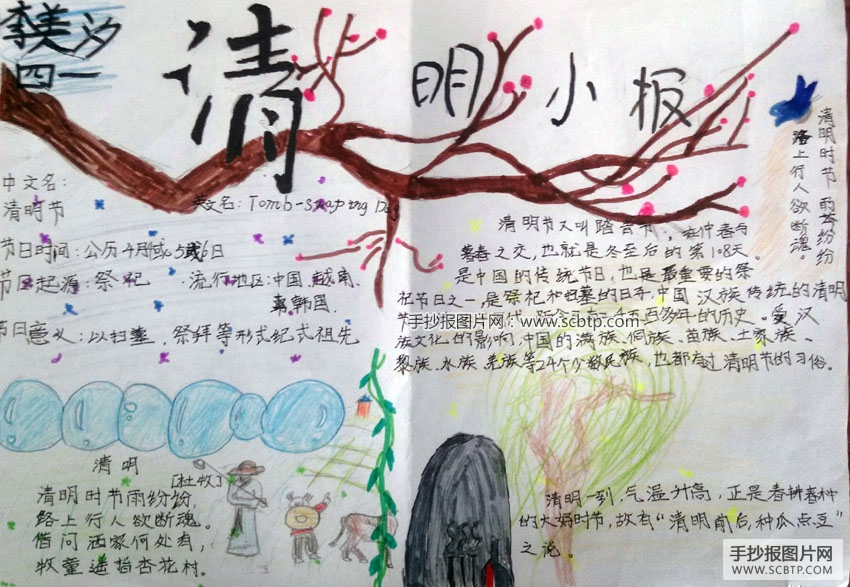 李美汐
四一
清明小报
中文名：
清明节
英文名：Tomb-
节日时间：公历4月 5或6日
节日起源：祭祀
流行地区：中国、越南、
韩国.
节日意义：以扫墓，祭拜等形式纪式祖先
清明节又叫踏去节，
春之交，也就是冬至后的第108天。
是中国的传统节日，也是最重要的祭
祀节日之一，是祭祀和扫墓的日子，中国汉族传统的清明
手抄报图片网：www.scbtp.com
年的历史。受汉
族文化的影响，中国的满族、侗族、苗族、土家族、
黎族、水族、羌族等24个少数民族，也都有过清明节的习俗。
清明时节雨纷纷
路上行人欲断魂
清明
[杜牧]
清明时节雨纷纷，
路上行人欲断魂。
借问酒家何处有，
牧童遥指杏花村。
清明一到，气温升高，正是春耕春种
的大好时节，故有“清明前后，种瓜点豆”
之说。
手抄报图片网
WWW.SCBTP.COM